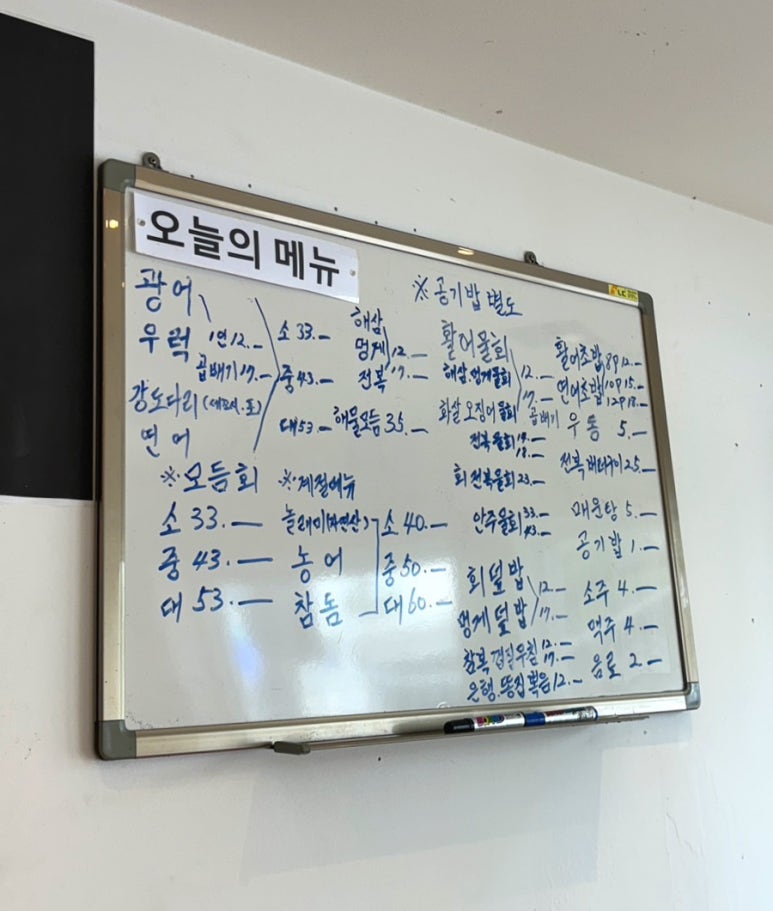 오늘의 메뉴
※ 공기밥 별도
광어
우럭 1인 12.—
곱배기 17.—
강도다리 (세꼬시.포)
연어
소 33.—
중 43.—
대 53.—
해삼
멍게 12.—
전복 17.—
해물모듬 35.—
※ 모듬회
소 33.—
중 43.—
대 53.—
※ 계절메뉴
놀래미(자연산)
농어
참돔
소 40.—
중 50.—
대 60.—
활어물회
해삼.멍게물회 12.—
화살오징어물회 곱배기 17.—
전복물회
18.—
회전복물회 23.—
안주물회 33.—
43.—
회덮밥 12.—
멍게덮밥 17.—
참복껍질무침 12.—
17.—
은행.똥집볶음 12.—
활어초밥 8P 12.—
연어초밥 10P 15.—
12P 18.—
우동 5.—
전복버터구이 25.—
매운탕 5.—
공기밥 1.—
소주 4.—
맥주 4.—
음료 2.—